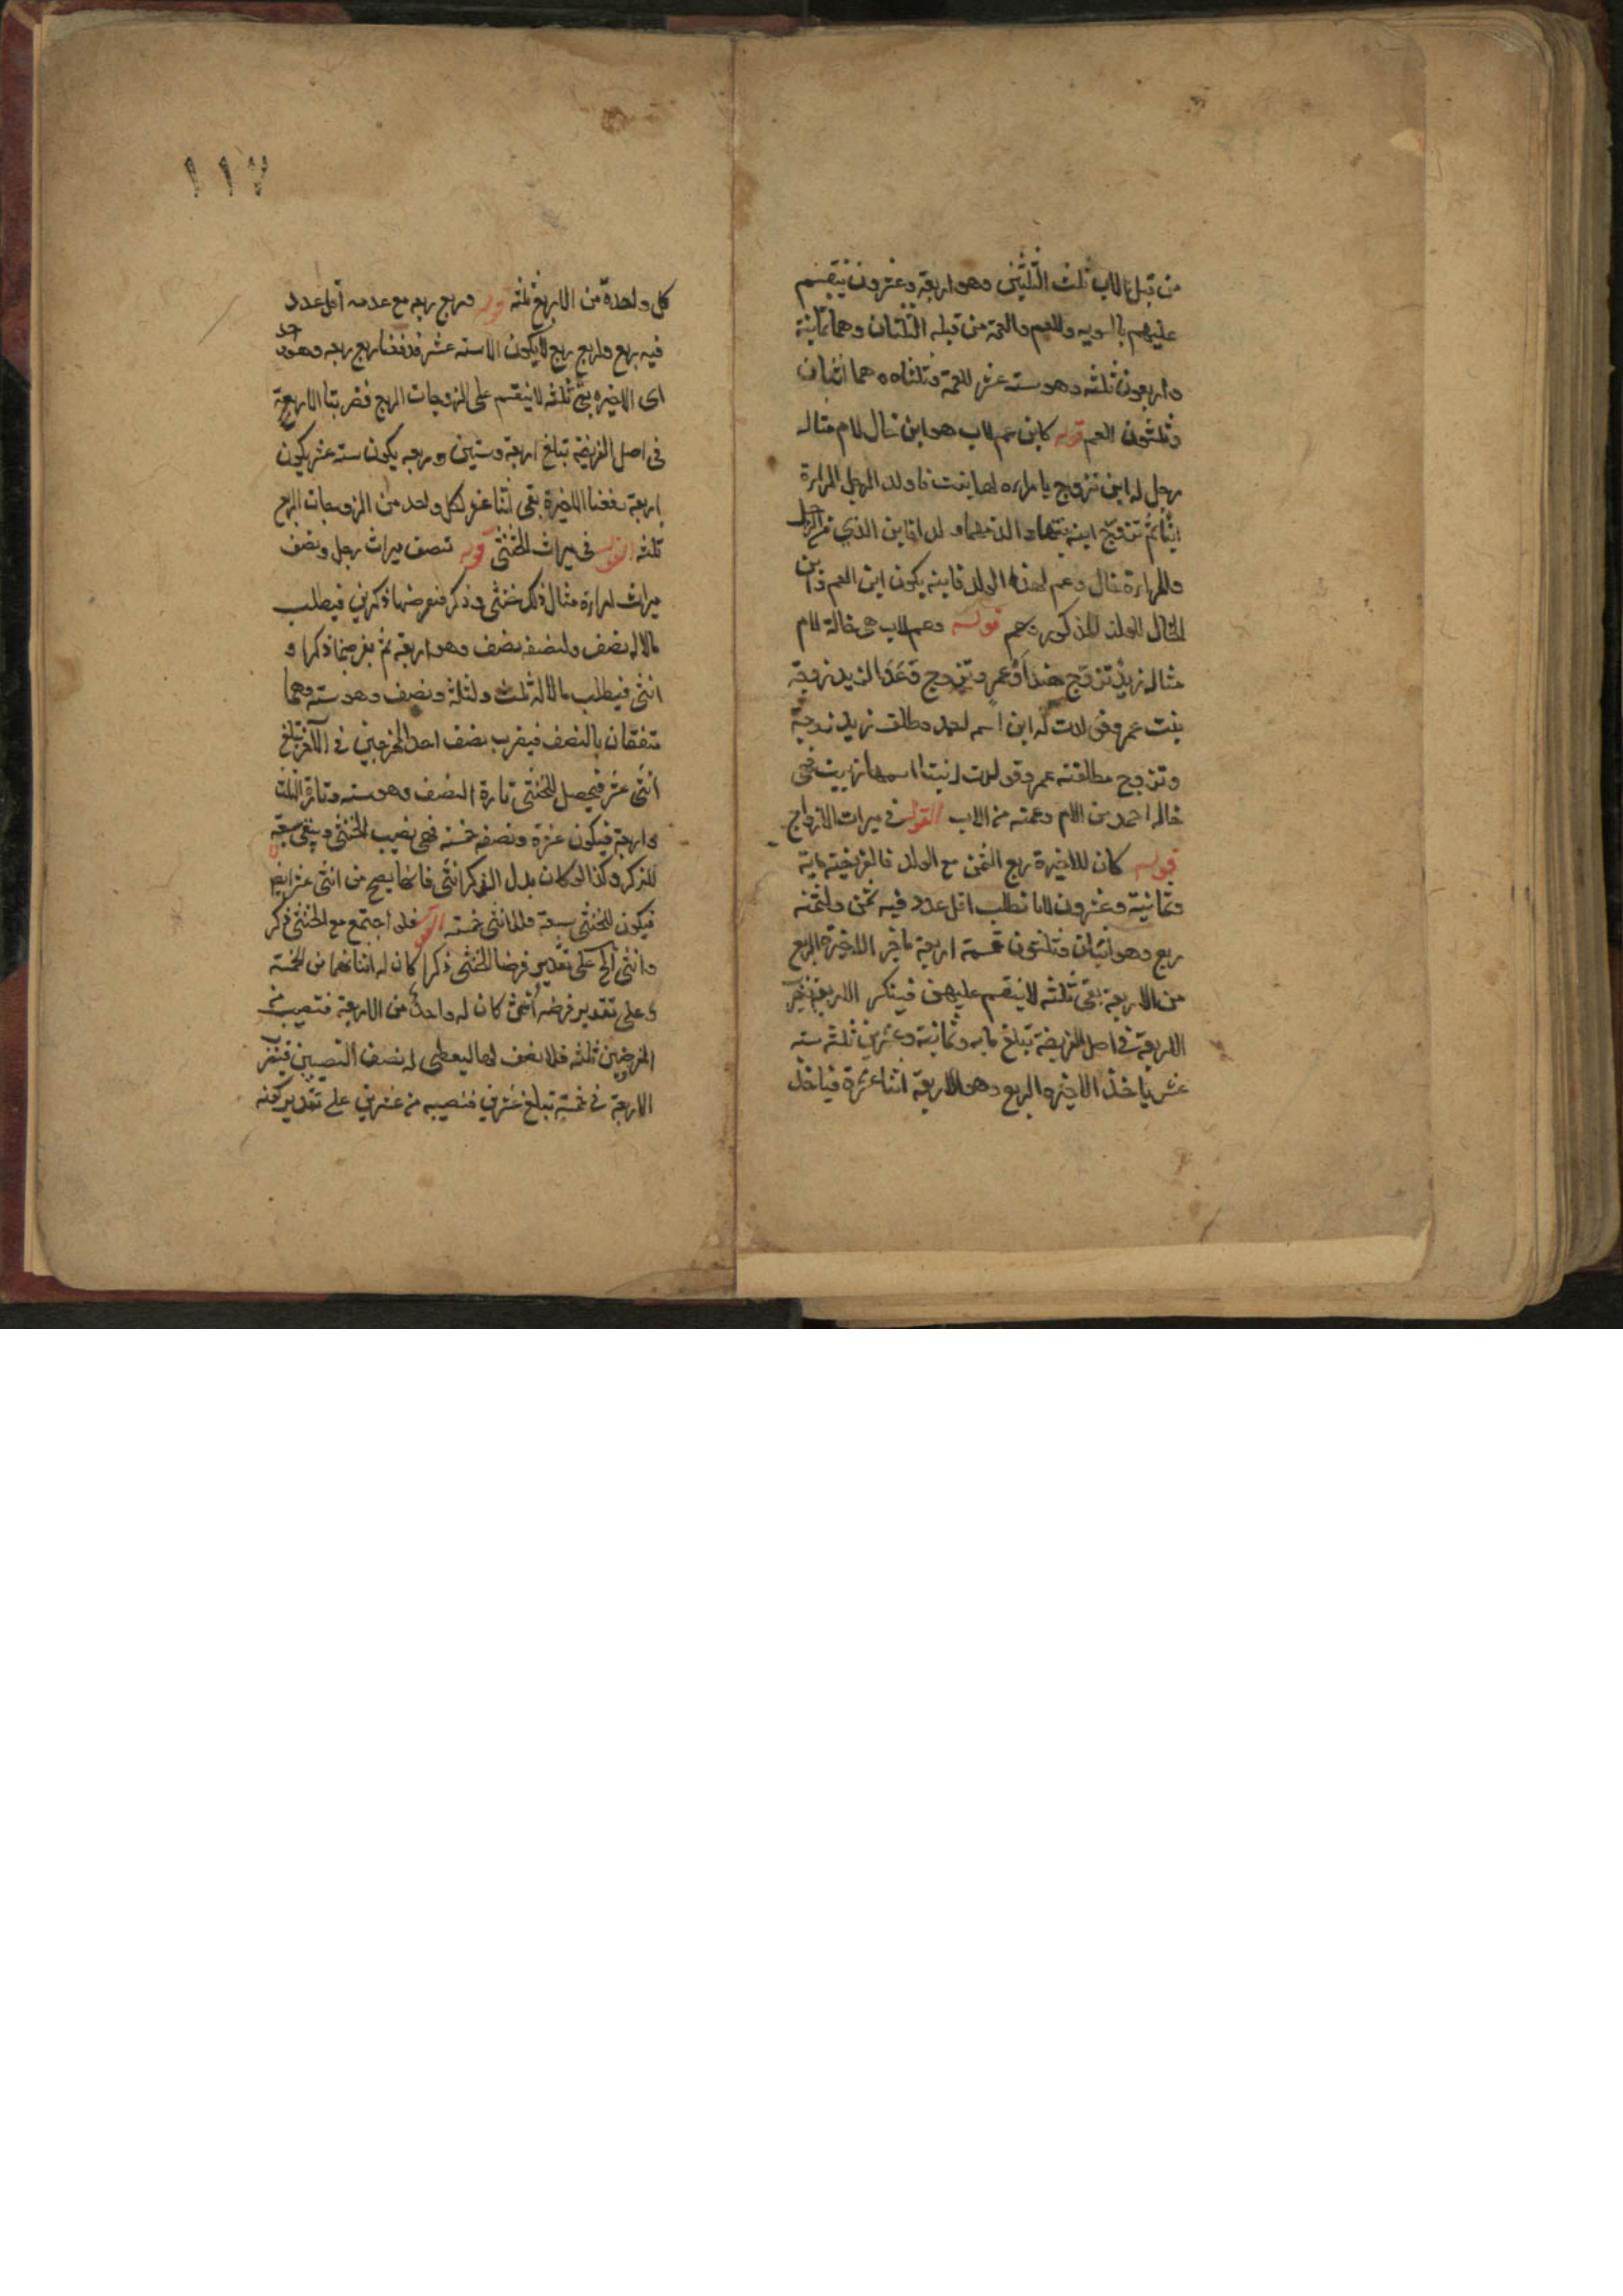 من قبل الاب ثلث الثلثين وهو اربعة وعشرون ينقسم
عليهم بالسويه وللعم والعمة من قبله الثلثان وهما ثمانية
واربعون ثلثه وهو ستة عشر للعمة وثلثاه وهما اثنان
وثلثون للعم قوله كابن عم لاب هو ابن خال لام مثاله
رجل له ابن تزوج بامراءة لها بنت فاولد الرجل المراءة
ابنا ثم تزوج ابنه بنتها
وللمراءة خال وعم لهذا الولد فابنه يكون ابن العم وابن
الخال للولد المذكور قوله وعم لاب هى خالة لام
مثاله زيد تزوج هندا وعمرو تزوج
بنت عمرو فولدت له ابن اسمه احمد وطلق زيد زوجته
وتزوج مطلقته عمرو فولدت له بنتا اسمها زينب فهى
خالة احمد من الام وعمته من الاب القول فى ميراث الازواج
قوله كان للاخيرة ربع الثمن مع الولد فالفريضة مايه
وثمانية وعشرون لانا نطلب اقل عدد فيه ثمن ولثمنه
ربع وهو اثنان وثلثون ثمنه اربعة تاخذ الاخيرة الربع
من الاربعة بقى ثلثه لا ينقسم عليهن فينكسر الاربعة
الاربعة فى اصل الفريضة تبلغ مايه وثمانية وعشرين ثمنه ستة
عشر ياخذ الاخيره الربع وهو الاربعة اثنا عشرة فياخذ
١١٧
كل واحدة من الاربع ثلثه قوله وربع ربعه مع عدمه اقل عدد
فيه ربع ولربع ربع لا يكون الا سته عشر فدفعنا ربع ربعه وهو واحد
اى الاخيره بقى ثلثه لا ينقسم على الزوجات الاربع فضربنا الاربعة
فى اصل الفريضة تبلغ اربعة وستين وربعه يكون ستة عشر يكون
اربعة دفعنا للاخيرة بقى اثنا عشر لكل واحد من الزوجات الاربع
ثلثه القول فى ميراث الخنثى قوله نصف ميراث رجل ونصف
ميراث امراءة مثال ذلك خنثى وذكر فنفرضهما ذكرين فيطلب
مالا له نصف ولنصفه نصف وهو اربعة ثم نفرضهما ذكرا و
انثى فيطلب مالا له ثلث ولثلثه ونصف وهو ستة وهما
متفقان بالنصف فيضرب نصف احد المخرجين فى الآخر تبلغ
اثنى عشر فيحصل للخنثى تارة النصف وهو سته وتارة الثلث
واربعة فيكون عشرة ونصفه خمسة فهى نصيب الخنثى ويبقى سبعة
للذكر وكذا لو كان بدل الذكر انثى فانها يصح من اثنى عشر ايضا
فيكون للخنثى سبعة وللانثى خمسة قوله فلو اجتمع مع الخنثى ذكر
وانثى الخ على تقدير فرضنا للخنثى ذكرا كان له اثنان من الخمسة
وعلى تقدير فرضه انثى كان له واحد من الاربعة فنصيب من
الفرضين ثلثه فلا نصف لها ليعطى له نصف النصيبين فيضرب
الاربعة فى خمسة تبلغ عشرين فنصيبه من عشرين على تقدير كونه